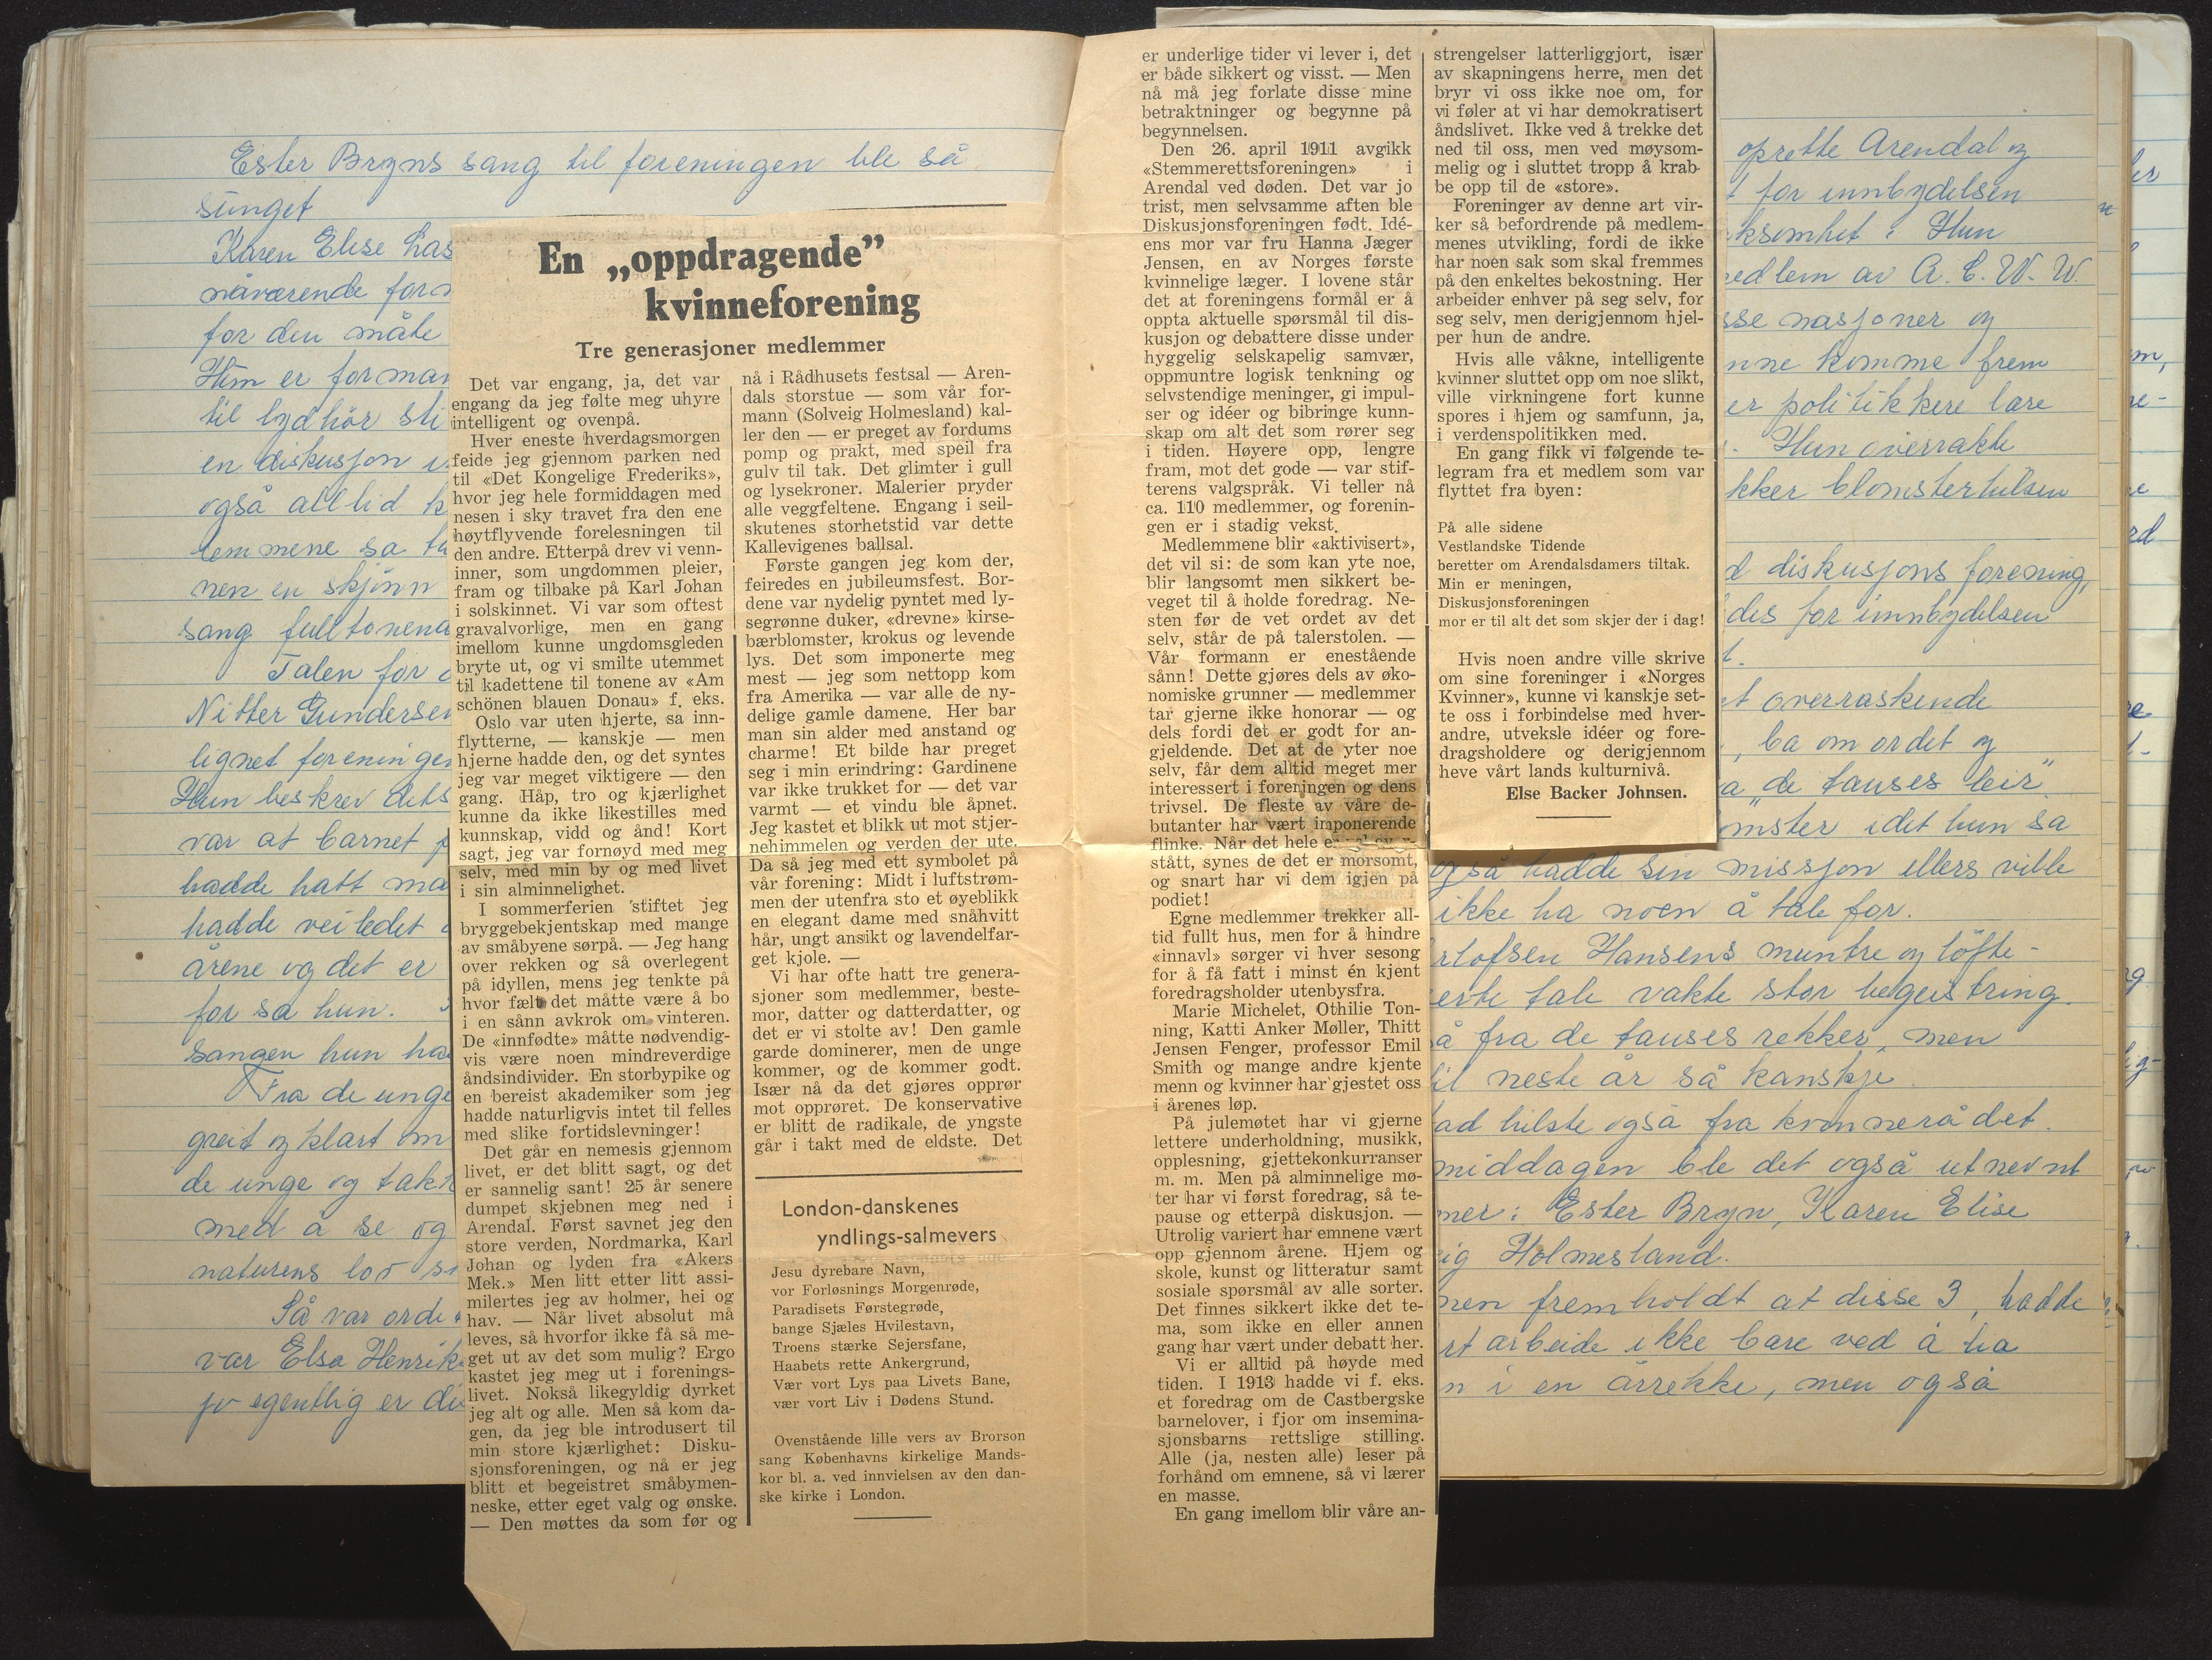 Ester Bryns sang til foreningen ble så
sunget
Karen Elise
nåværende
for den måte
Hun er
til lydhör
en diskusjon
også alltid
sa
nen en skjönn
sang
Talen for
Nitter Gundersen
lignet
Hun beskrev
var at barnet
hadde hatt
hadde veiledet
årene og det er
for sa hun.
sangen hun
Fra de unge
greit og klart om
de unge og
med å se og
naturens lov
Så var
var Elsa
jo egentlig er
En „oppdragende”
kvinneforening
Tre generasjoner medlemmer
Det var engang, ja, det var
engang da jeg følte meg uhyre
intelligent og ovenpå.
Hver eneste hverdagsmorgen
feide jeg gjennom parken ned
til «Det Kongelige Frederiks»,
hvor jeg hele formiddagen med
nesen i sky travet fra den ene
høytflyvende forelesningen til
den andre. Etterpå drev vi venn-
inner, som ungdommen pleier,
fram og tilbake på Karl Johan
i solskinnet. Vi var som oftest
gravalvorlige, men en gang
imellom kunne ungdomsgleden
bryte ut, og vi smilte utemmet
til kadettene til tonene av «Am
schönen blauen Donau» f. eks.
Oslo var uten hjerte, sa inn-
flytterne, — kanskje — men
hjerne hadde den, og det syntes
jeg var meget viktigere — den
gang. Håp, tro og kjærlighet
kunne da ikke likestilles med
kunnskap, vidd og ånd! Kort
sagt, jeg var fornøyd med meg
selv, med min by og med livet
i sin alminnelighet.
I sommerferien stiftet jeg
bryggebekjentskap med mange
av småbyene sørpå. — Jeg hang
over rekken og så overlegent
på idyllen, mens jeg tenkte på
hvor fælt det måtte være å bo
i en sånn avkrok om vinteren.
De «innfødte» måtte nødvendig-
vis være noen mindreverdige
åndsindivider. En storbypike og
en bereist akademiker som jeg
hadde naturligvis intet til felles
med slike fortidslevninger!
Det går en nemesis gjennom
livet, er det blitt sagt, og det
er sannelig sant! 25 år senere
dumpet skjebnen meg ned i
Arendal. Først savnet jeg den
store verden, Nordmarka, Karl
Johan og lyden fra «Akers
Mek.» Men litt etter litt assi-
milertes jeg av holmer, hei og
hav. — Når livet absolut må
leves, så hvorfor ikke få så me-
get ut av det som mulig? Ergo
kastet jeg meg ut i forenings-
livet. Nokså likegyldig dyrket
jeg alt og alle. Men så kom da-
gen, da jeg ble introdusert til
min store kjærlighet: Disku-
sjonsforeningen, og nå er jeg
blitt et begeistret småbymen-
neske, etter eget valg og ønske.
— Den møttes da som før og
nå i Rådhusets festsal — Aren-
dals storstue — som vår for-
mann (Solveig Holmesland) kal-
ler den — er preget av fordums
pomp og prakt, med speil fra
gulv til tak. Det glimter i gull
og lysekroner. Malerier pryder
alle veggfeltene. Engang i seil-
skutenes storhetstid var dette
Kallevigenes ballsal.
Første gangen jeg kom der,
feiredes en jubileumsfest. Bor-
dene var nydelig pyntet med ly-
segrønne duker, «drevne» kirse-
bærblomster, krokus og levende
lys. Det som imponerte meg
mest — jeg som nettopp kom
fra Amerika — var alle de ny-
delige gamle damene. Her bar
man sin alder med anstand og
charme! Et bilde har preget
seg i min erindring: Gardinene
var ikke trukket for — det var
varmt — et vindu ble åpnet.
Jeg kastet et blikk ut mot stjer-
nehimmelen og verden der ute.
Da så jeg med ett symbolet på
vår forening: Midt i luftstrøm-
men der utenfra sto et øyeblikk
en elegant dame med snåhvitt
hår, ungt ansikt og lavendelfar-
get kjole. —
Vi har ofte hatt tre genera-
sjoner som medlemmer, beste-
mor, datter og datterdatter, og
det er vi stolte av! Den gamle
garde dominerer, men de unge
kommer, og de kommer godt.
Især nå da det gjøres opprør
mot opprøret. De konservative
er blitt de radikale, de yngste
går i takt med de eldste. Det
London-danskenes
yndlings-salmevers
Jesu dyrebare Navn,
vor Forløsnings Morgenrøde,
Paradisets Førstegrøde,
bange Sjæles Hvilestavn,
Troens stærke Sejersfane,
Haabets rette Ankergrund,
Vær vort Lys paa Livets Bane,
vær vort Liv i Dødens Stund.
Ovenstående lille vers av Brorson
sang Københavns kirkelige Mands-
kor bl. a. ved innvielsen av den dan-
ske kirke i London.
er underlige tider vi lever i, det
er både sikkert og visst. — Men
nå må jeg forlate disse mine
betraktninger og begynne på
begynnelsen.
Den 26. april 1911 avgikk
«Stemmerettsforeningen» i
Arendal ved døden. Det var jo
trist, men selvsamme aften ble
Diskusjonsforeningen født. Idé-
ens mor var fru Hanna Jæger
Jensen, en av Norges første
kvinnelige læger. I lovene står
det at foreningens formål er å
oppta aktuelle spørsmål til dis-
kusjon og debattere disse under
hyggelig selskapelig samvær,
oppmuntre logisk tenkning og
selvstendige meninger, gi impul-
ser og idéer og bibringe kunn-
skap om alt det som rører seg
i tiden. Høyere opp, lengre
fram, mot det gode — var stif-
terens valgspråk. Vi teller nå
ca. 110 medlemmer, og forenin-
gen er i stadig vekst.
Medlemmene blir «aktivisert»,
det vil si: de som kan yte noe,
blir langsomt men sikkert be-
veget til å holde foredrag. Ne-
sten før de vet ordet av det
selv, står de på talerstolen. —
Vår formann er enestående
sånn! Dette gjøres dels av øko-
nomiske grunner — medlemmer
tar gjerne ikke honorar — og
dels fordi det er godt for an-
gjeldende. Det at de yter noe
selv, får dem alltid meget mer
interessert i foreningen og dens
trivsel. De fleste av våre de-
butanter har vært imponerende
flinke. Når det hele er
stått, synes de det er morsomt,
og snart har vi dem igjen på
podiet!
Egne medlemmer trekker all-
tid fullt hus, men for å hindre
«innavl» sørger vi hver sesong
for å få fatt i minst én kjent
foredragsholder utenbysfra.
Marie Michelet, Othilie Ton-
ning, Katti Anker Møller, Thitt
Jensen Fenger, professor Emil
Smith og mange andre kjente
menn og kvinner har gjestet oss
i årenes løp.
På julemøtet har vi gjerne
lettere underholdning, musikk,
opplesning, gjettekonkurranser
m. m. Men på alminnelige mø-
ter har vi først foredrag, så te-
pause og etterpå diskusjon. —
Utrolig variert har emnene vært
opp gjennom årene. Hjem og
skole, kunst og litteratur samt
sosiale spørsmål av alle sorter.
Det finnes sikkert ikke det te-
ma, som ikke en eller annen
gang har vært under debatt her.
Vi er alltid på høyde med
tiden. I 1913 hadde vi f. eks.
et foredrag om de Castbergske
barnelover, i fjor om insemina-
sjonsbarns rettslige stilling.
Alle (ja, nesten alle) leser på
forhånd om emnene, så vi lærer
en masse.
En gang imellom blir våre an-
strengelser latterliggjort, især
av skapningens herre, men det
bryr vi oss ikke noe om, for
vi føler at vi har demokratisert
åndslivet. Ikke ved å trekke det
ned til oss, men ved møysom-
melig og i sluttet tropp å krab-
be opp til de «store».
Foreninger av denne art vir-
ker så befordrende på medlem-
menes utvikling, fordi de ikke
har noen sak som skal fremmes
på den enkeltes bekostning. Her
arbeider enhver på seg selv, for
seg selv, men derigjennom hjel-
per hun de andre.
Hvis alle våkne, intelligente
kvinner sluttet opp om noe slikt,
ville virkningene fort kunne
spores i hjem og samfunn, ja,
i verdenspolitikken med.
En gang fikk vi følgende te-
legram fra et medlem som var
flyttet fra byen:
På alle sidene
Vestlandske Tidende
beretter om Arendalsdamers tiltak.
Min er meningen,
Diskusjonsforeningen
mor er til alt det som skjer der i dag!
Hvis noen andre ville skrive
om sine foreninger i «Norges
Kvinner», kunne vi kanskje set-
te oss i forbindelse med hver-
andre, utveksle idéer og fore-
dragsholdere og derigjennom
heve vårt lands kulturnivå.
Else Backer Johnsen.
oprette Arendal og
for innbydelsen
Hun
av A. C. W. W.
nasjoner og
komme frem
er politikkere lære
Hun overrakte
blomsterhilsen
diskusjons forening,
for innbydelsen
overraskende
, ba om ordet og
"de tauses leir".
idet hun sa
også hadde sin missjon ellers ville
ikke ha noen å tale for.
Hansens muntre og löfte-
tale vakte stor begeistring.
fra de tauses rekker, men
neste år så kanskje.
hilste også fra kvinnerådet.
middagen ble det også utnevnt
: Ester Bryn, Karen Elise
Holmesland.
fremholdt at disse 3, hadde
arbeide ikke bare ved å ha
i en årrekke, men også